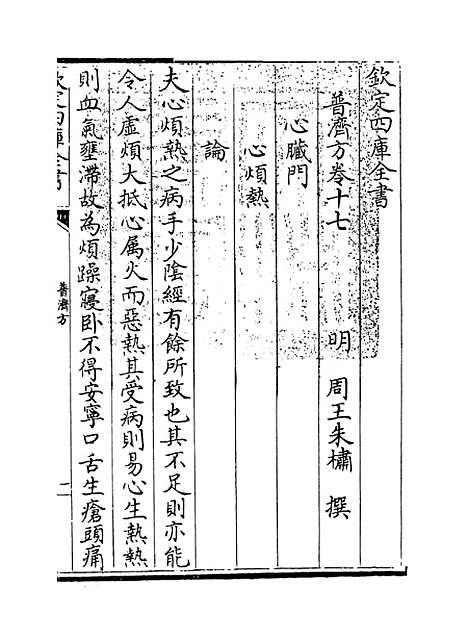 欽定四庫全書
普濟方卷十七
明 周王朱橚 撰
心臟門
心煩熱
論
夫心煩熱之病手少陰經有餘所致也其不足則亦能
令人虛煩大抵心属火而惡熱其受病則易心生熱熱
則血氣壅滯故為煩躁寢卧不得安寧口舌生瘡頭痛
欽定四庫全書
普濟方